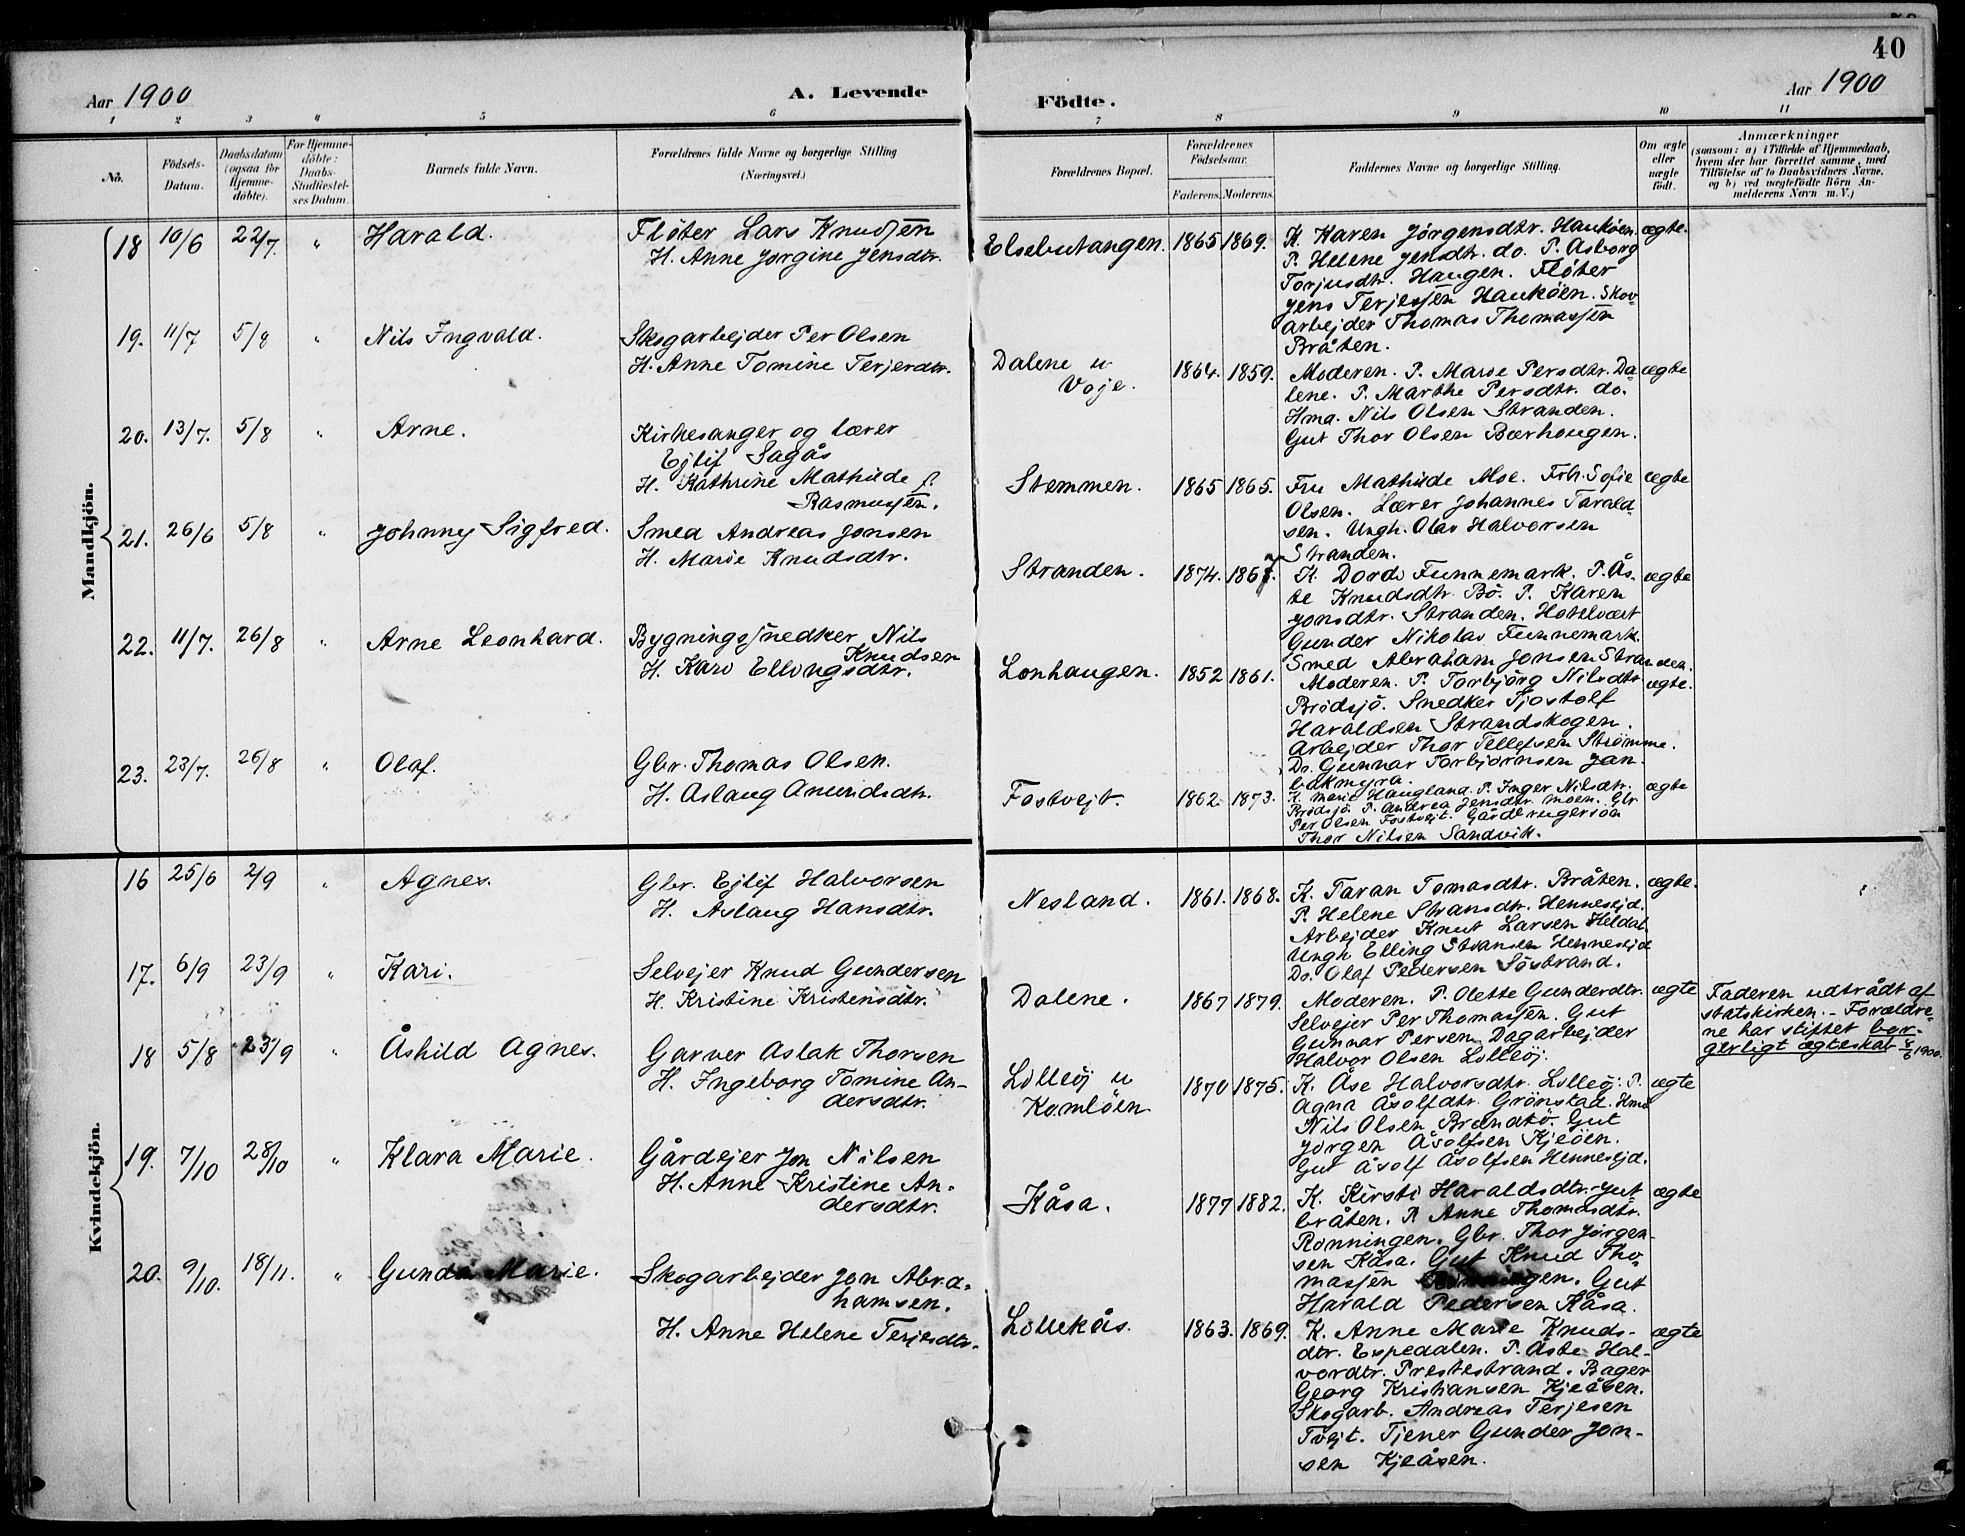 40
Aar 1900
A. Levende
Födte.
Aar 1900
1 2 3 4 5 6 7 8 9 10 11
No.
Födsels-Datum.
Daabsdatum (ogsaa for Hjemme-döbte).
For Hjemme-döbte: Daabs-Stadfæstel-ses Datum.
Barnets fulde Navn.
Forældrenes fulde Navne og borgerlige Stilling (Næringsvei.)
Forældrenes Bopæl.
Forældrenes Födselsaar.
Faderens. Moderens.
Faddernes Navne og borgerlige Stilling.
Om ægte eller uægte födt.
Anmærkninger
(saasom: a) i Tilfælde af Hjemmedaab,
hvem der har forrettet samme, med
Tilföielse af to Daabsvidners Navne.
og b) ved uægtefödte Börn An-
melderens Navn m. V.)
Mandkjön.
18 10/6 22/7. " Harald.
Fløter Lars Knudsen
H. Anne Jørgine Jensdtr.
Elsebutangen. 1865 1869.
K. Karen Jørgensdtr. Haukøen.
P. Helene Jensdtr. do. P. Asborg
Torjusdtr. Haugen. Fløter
Jens Terjesen Haukøen. Skov-
arbejder Thomas Thomassen
Bråten.
ægte.
19. 11/7 5/8 " Nils Ingvald.
Skogarbejder Per Olsen
H. Anne Tomine Terjerdtr.
Dalene u
Voje.
1864. 1859.
Moderen. P. Marie Persdtr. Da-
lene. P. Marthe Persdtr. do.
Hmd. Nils Olsen Stranden.
Gut Thor Olsen Bærhougen.
ægte
20. 13/7. 5/8 " Arne.
Kirkesanger og lærer
Ejlif Sagås
H. Kathrine Mathilde f.
Rasmussen.
Stemmen. 1865 1865.
Fru Mathilde Moe. Frk. Sofie
Olsen. Lærer Johannes Tarald-
sen. Ungk. Olav Halvorsen
Stranden.
ægte
21. 26/6 5/8 " Johnny Sigfred.
Smed Andreas Jonsen
H. Marie Knudsdtr.
Stranden. 1874. 1867.
K. Dordi Funnemark. P. Ås-
te Knudsdtr. Bö. P. Karen
Jonsdtr. Stranden. Hotelvært
Gunder Nikolai Funnemark.
Smed Abraham Jonsen Stranden.
ægte
22. 11/7. 26/8 " Arne Leonhard.
Bygningssnedker Nils
Knudsen
H. Kari Ellingsdtr.
Lonhaugen. 1852 1861.
Moderen. P. Torbjörg Nilsdtr.
Brødsjö. Snedker Tjostolf
Haraldsen Strandskogen.
Arbejder Thor Tellefsen Strömme.
Do. Gunnar Torbjörnsen Jon-
bakmyra.
ægte.
23. 23/7. 26/8 " Olaf.
Gbr. Thomas Olsen.
H. Aslaug Amundsdtr.
Fostvejt. 1862 1873.
K. Marie Haugland. P. Inger Nilsdtr.
Brødsjö. P. Andrea Jensdtr. Moen. Gbr.
Per Olsen Fostvejt. Gårdbrugersön
Thor Nilsen Sandvik.
ægte
Kvindekjön.
16 25/6 2/9 " Agnes.
Gbr. Ejlif Halvorsen
H. Aslaug Hansdtr.
Nesland. 1861. 1868.
K. Taran Tomasdtr. Bråten.
P. Helene Stiansdtr. Hennesejd.
Arbejder Knut Larsen Heldal.
Ungk. Elling Stiansen Hennesejd
Do. Olaf Pedersen Söstrand.
ægte.
17. 6/9 23/9 " Kari.
Selvejer Knud Gundersen
H. Kristine Kristensdtr.
Dalene. 1867 1879.
Moderen. P. Olette Gunderdtr.
Selvejer Per Thomassen. Gut
Gunnar Persen. Dagarbejder
Halvor Olsen Lilleöj.
ægte
Faderen udtrådt af
statskirken. – Forældre-
ne har stiftet bor-
gerligt ægteskab 8/6 1900.
18 5/8 23/9 " Åshild Agnes.
Garver Aslak Thorsen
H. Ingeborg Tomine An-
dersdtr.
Lilleöj u
Komlöen
1870 1875.
K. Åse Halvorsdtr. Lilleöj. P.
Agna Åsolfdtr. Grönstad. Hmd
Nils Olsen Brandtö. Gut
Jörgen Åsolfsen Kjeöen.
Gut Åsolf Åsolfsen Hennesejd.
ægte
19. 7/10 28/10 " Klara Marie.
Gårdejer Jon Nilsen
H. Anne Kristine An-
dersdtr.
Kåsa. 1877 1882.
K. Kirsti Haraldsdtr. Jut-
bråten. P. Anne Thomasdtr.
Rönningen. Gbr. Thor Jörgen-
sen Kåsa. Gut Knud Tho-
massen Rönningen. Gut
Harald Pedersen Kåsa.
ægte
20. 9/10. 18/11. " Gunda Marie.
Skogarbejder Jon Abra-
hamsen.
H. Anne Helene Terjesdtr.
Lillekås. 1863. 1869.
K. Anne Marie Knuds-
dtr. Espedalen. P. Åste Hal-
vordtr. Prestestrand. Bager
Georg Kristiansen Kjeåsen.
Skogarb. Andreas Terjesen
Tvejt. Tjener Gunder Jon-
sen Kjeåsen.
ægte